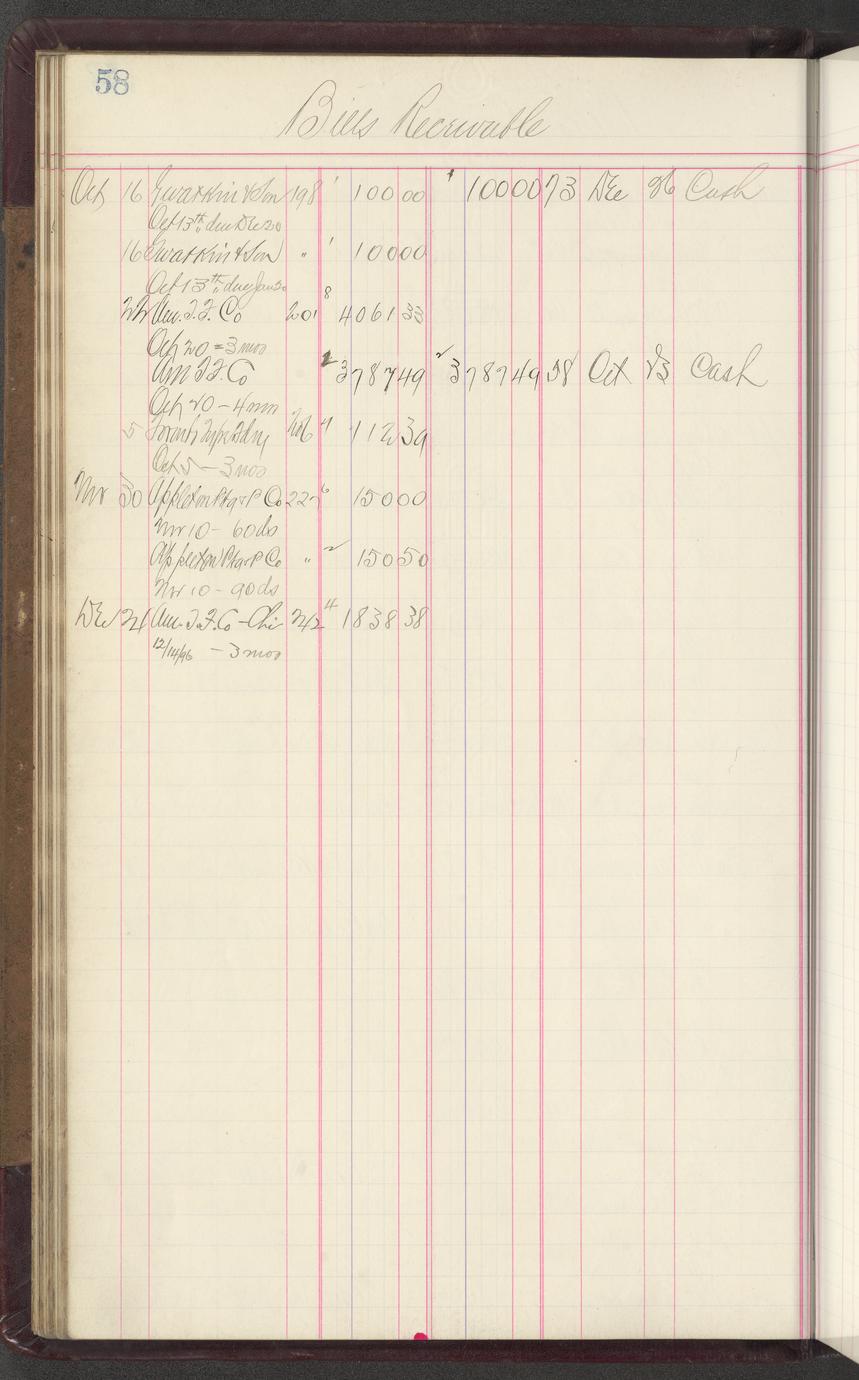 58
Bills Receivable
Oct 16 Gwatkin & Son 198 1 100 00 1 100 00 73 Dec 26 Cash
Oct 13th due Dec 20
16 Gwatkin & Son " 1 100 00
Oct 13th due Jan 20
22 Am. T. F. Co 201 8 4061 33
Oct 20 = 3 mos
Am T F Co 2 3787 49 2 3787 49 58 Oct 23 Cash
Oct 20 - 4 mos
5 Type Fdry 206 4 112 39
Oct 5 - 3 mos
Nov 30 Appleton Ptg & P Co 227 6 150 00
Nov 10 - 60 ds
Appleton Ptg & P Co " 2 150 50
Nov 10 - 90 ds
Dec 21 Am. T. F. Co - Chi 242 4 1838 38
12/14/96 - 3 mos